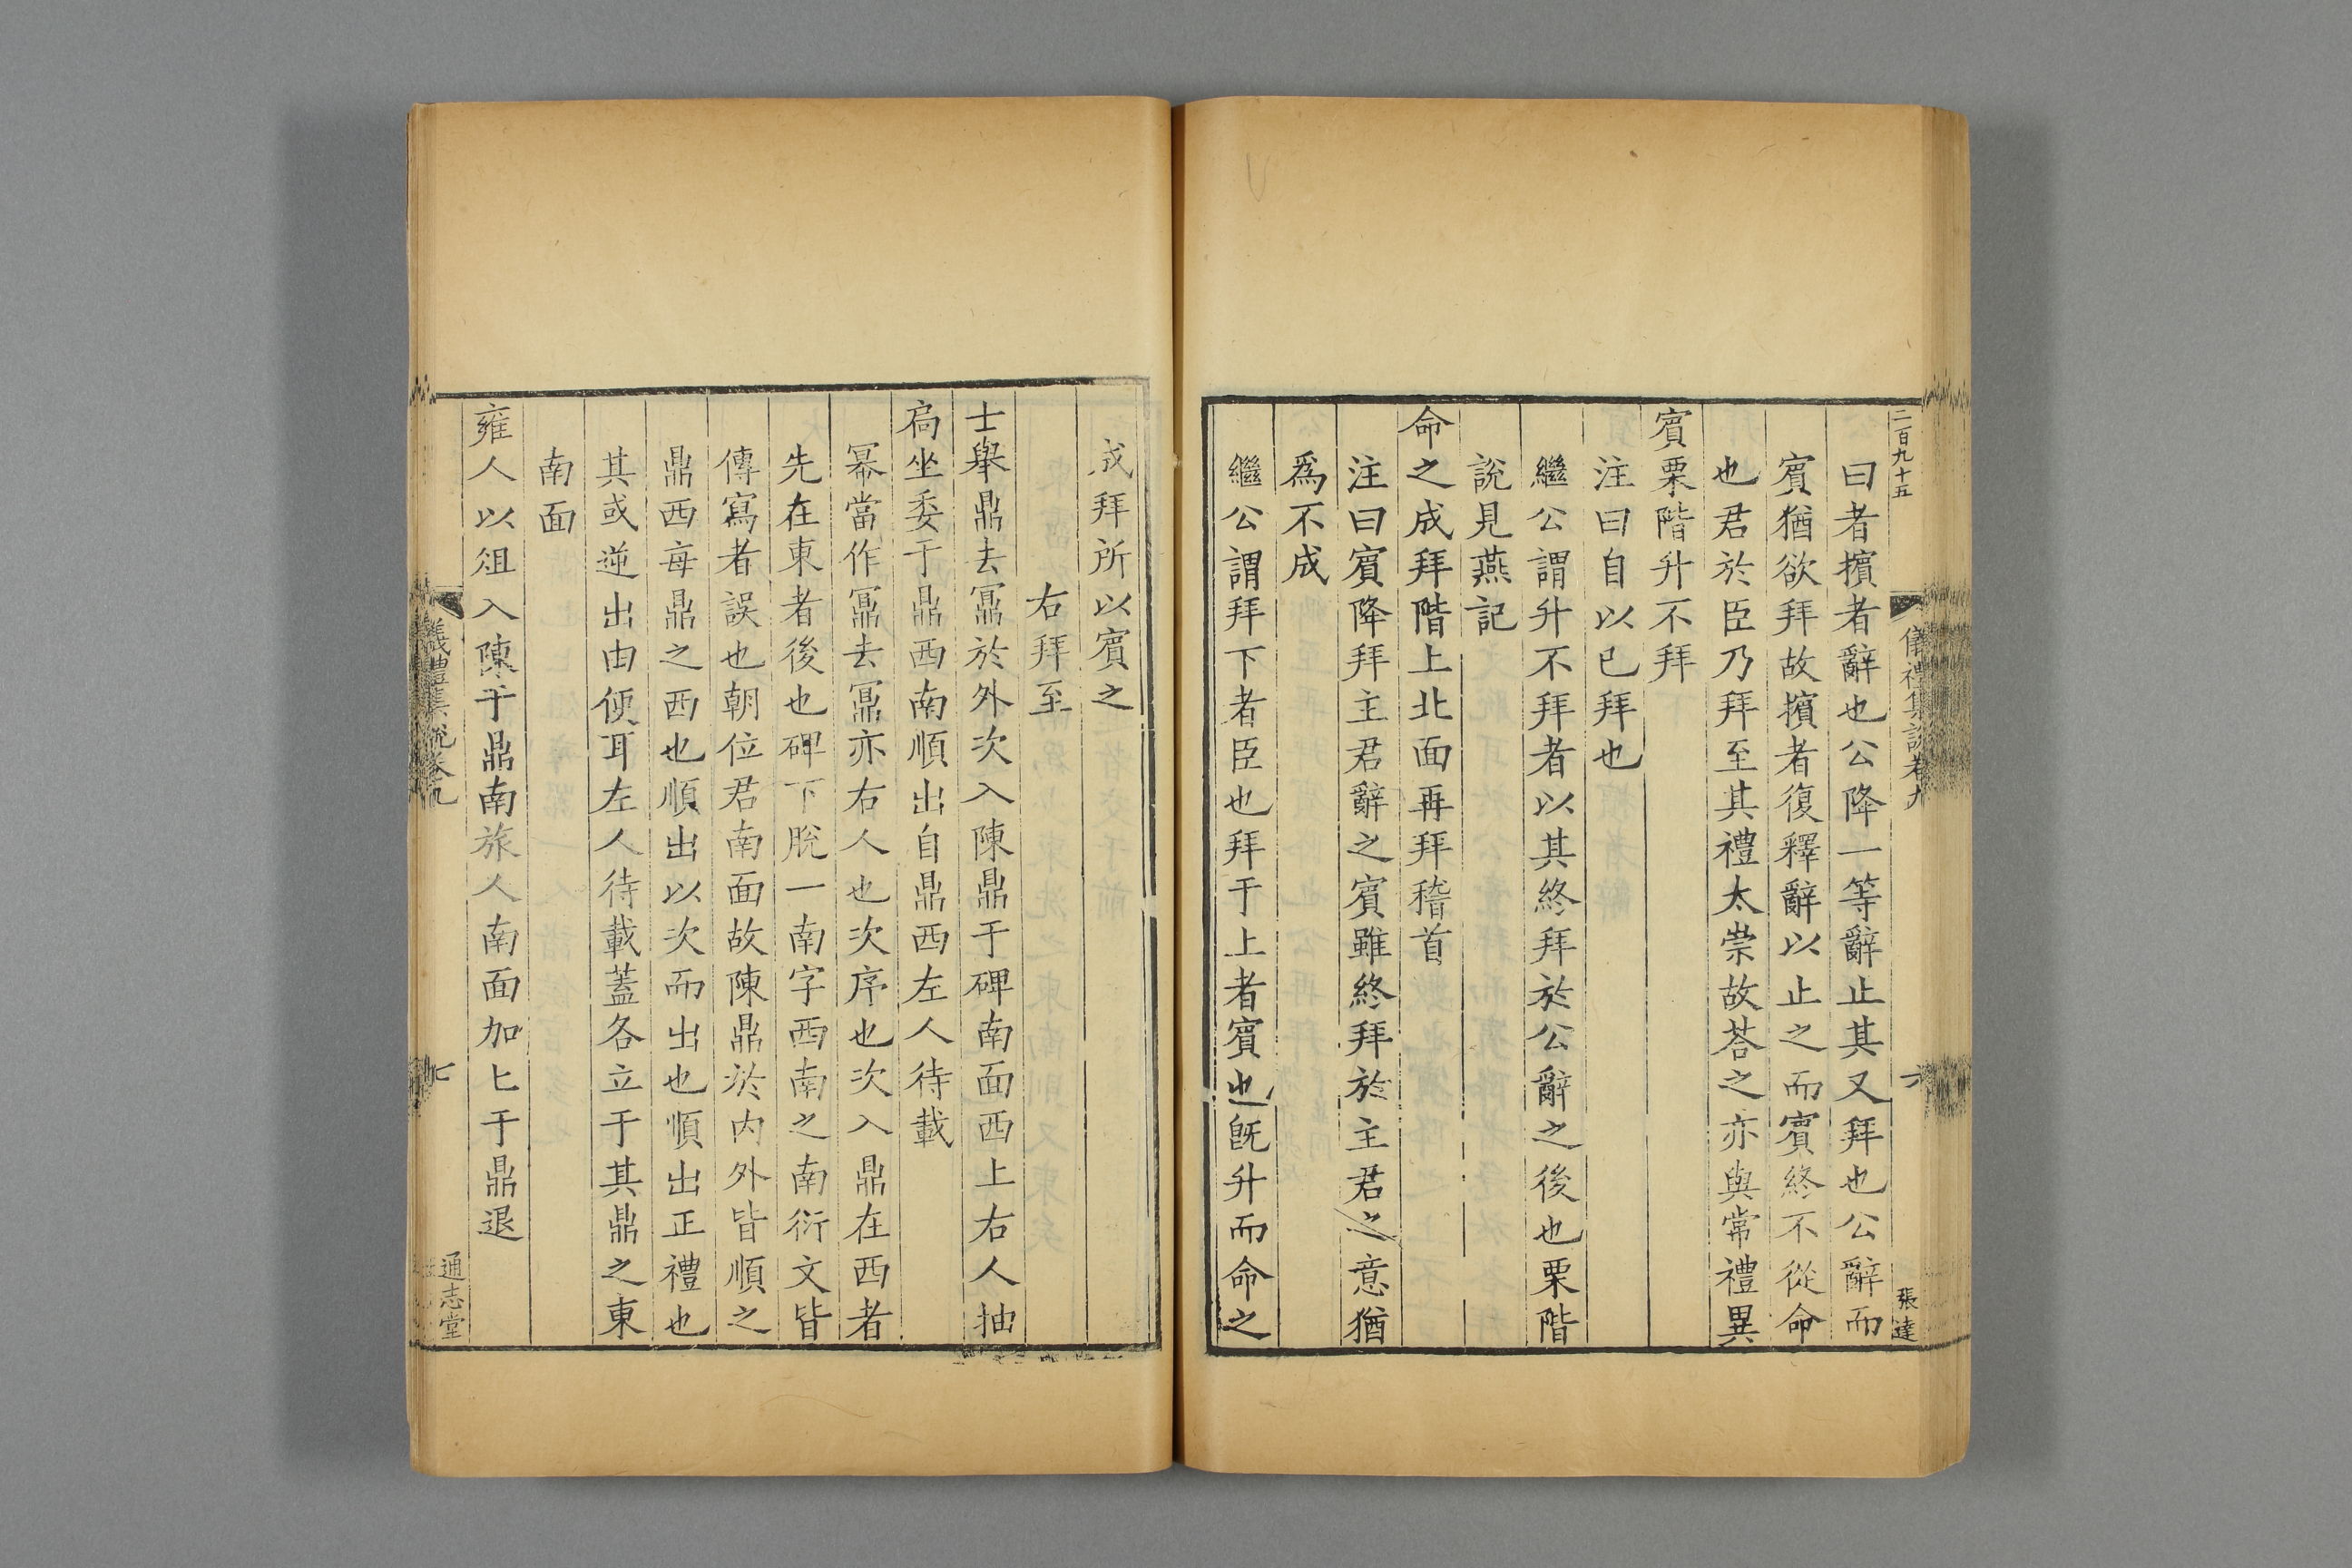 二百九十五
儀禮集說卷九
六
張達
曰者擯者辭也公降一等辭止其又拜也公辭而
賓猶欲拜故擯者復釋辭以止之而賓終不從命
也君於臣乃拜至其禮太崇故荅之亦與常禮異
賓栗階升不拜
注曰自以已拜也
繼公謂升不拜者以其終拜於公辭之後也栗階
說見燕記
命之成拜階上北面再拜稽首
注曰賓降拜主君辭之賓雖終拜於主君之意猶
爲不成
繼公謂拜下者臣也拜于上者賓也旣升而命之
成拜所以賓之
右拜至
士舉鼎去鼏於外次入陳鼎于碑南面西上右人抽
扃坐委于鼎西南順出自鼎西左人待載
冪當作鼏去鼏亦右人也次序也次入鼎在西者
先在東者後也碑下脫一南字西南之南衍文皆
傳寫者誤也朝位君南面故陳鼎於内外皆順之
鼎西每鼎之西也順出以次而出也順出正禮也
其或逆出由便耳左人待載蓋各立于其鼎之東
南面
雍人以俎入陳于鼎南旅人南面加匕于鼎退
儀禮集說卷九
七
通志堂